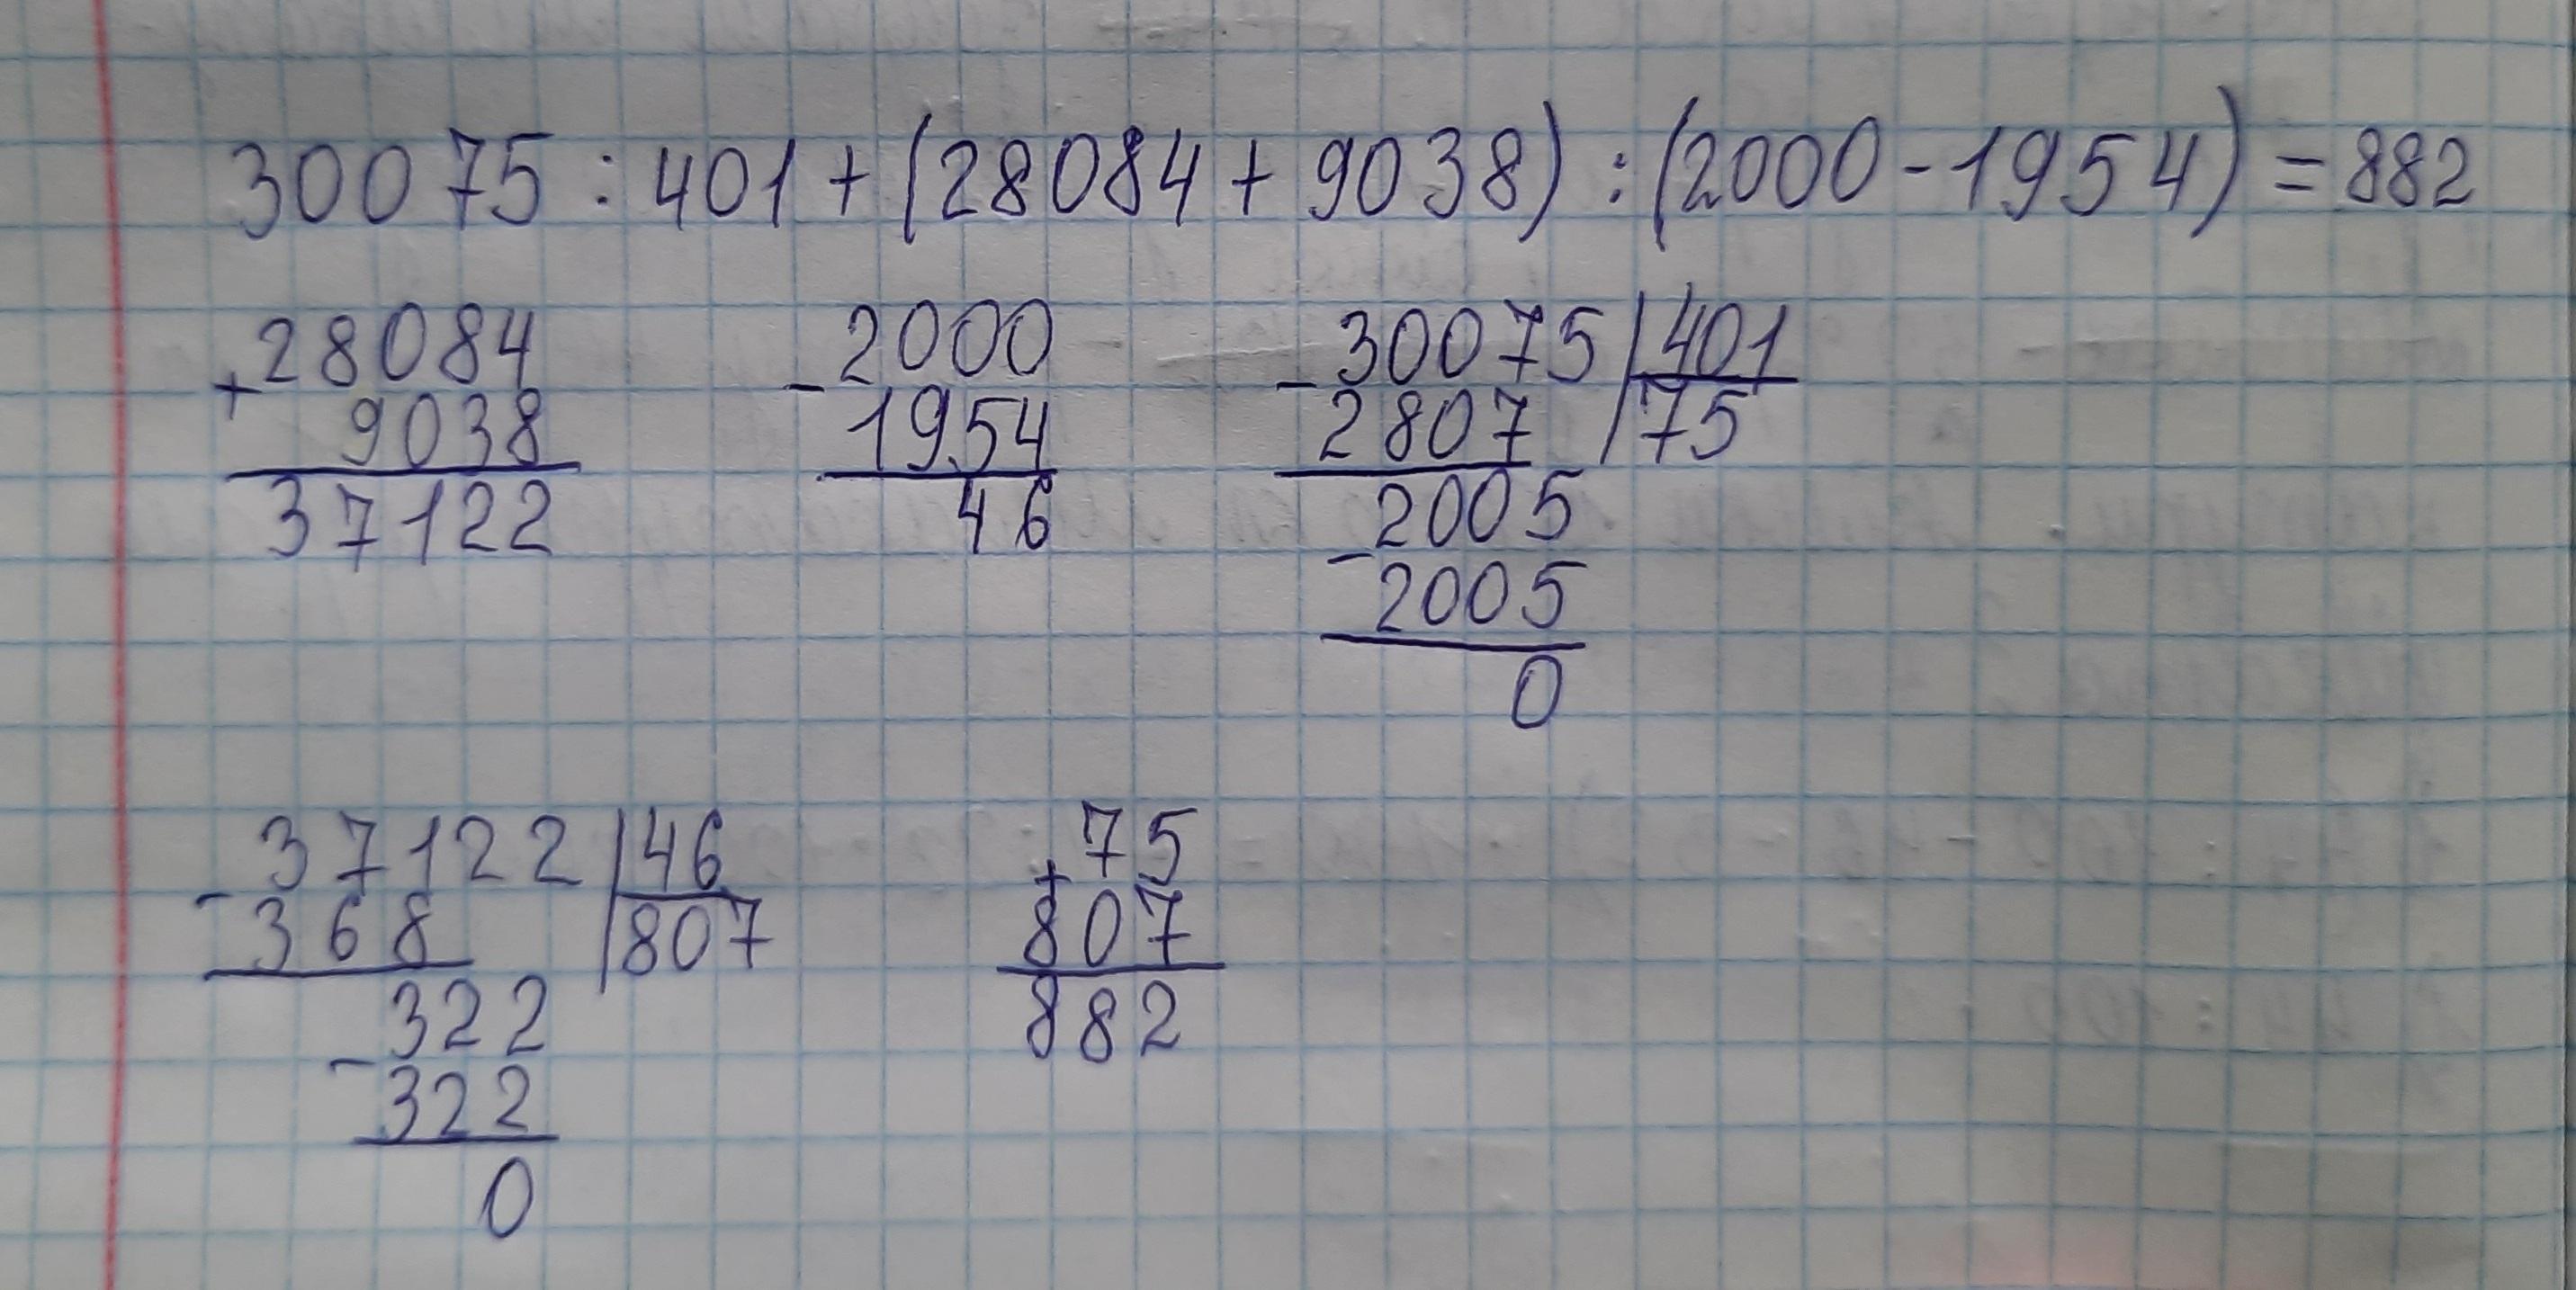 30075 : 401 + (28084 + 9038) : (2000 - 1954) = 882
+ 28084
9038
37122
- 2000
1954
46
- 30075 | 401
2807 | 75
- 2005
2005
0
- 37122 | 46
368 | 807
- 322
322
0
+ 75
807
882